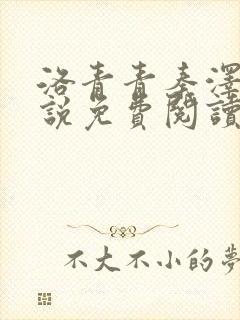 洛青青秦澤
說免費閱讀
不大不小的夢